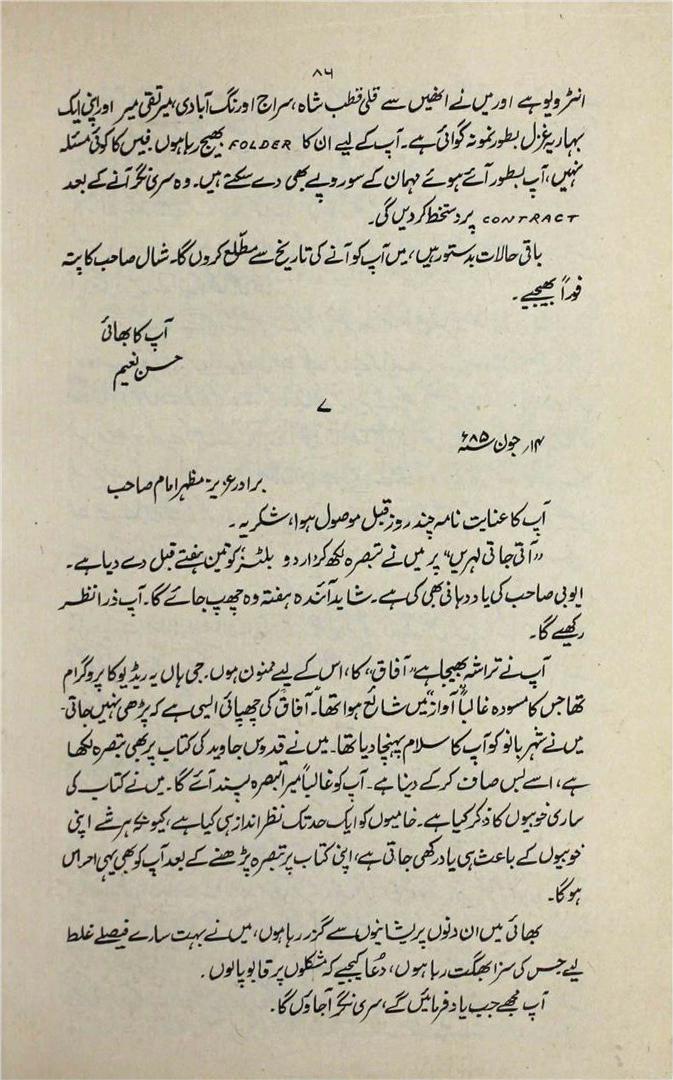 ۸۶
انٹرویو ہے اور میں نے انھیں سے قلی قطب شاہ، سراج اورنگ آبادی، میر تقی میر اور اپنی ایک
بہاریہ غزل بطور نمونہ گوائی ہے۔ آپ کے لیے ان کا FOLDER بھیج رہا ہوں۔ فیس کا کوئی مسئلہ
نہیں، آپ بطور آئے ہوئے مہمان کے سو روپے بھی دے سکتے ہیں۔ وہ سری نگر آنے کے بعد
CONTRACT پر دستخط کر دیں گی۔
باقی حالات بدستور ہیں، میں آپ کو آنے کی تاریخ سے مطلع کروں گا۔ شال صاحب کا پتہ
فوراً بھیجیے۔
آپ کا بھائی
حسن نعیم
۷
۱۴؍ جون سنہ ۸۵ء
برادر عزیز مظہر امام صاحب
آپ کا عنایت نامہ چند روز قبل موصول ہوا، شکریہ۔
"آتی جاتی لہریں" پر میں نے تبصرہ لکھ کر اردو بلٹز کو تین ہفتے قبل دے دیا ہے۔
ایوبی صاحب کی یاد دہانی بھی کی ہے۔ شاید آئندہ ہفتہ وہ چھپ جائے گا۔ آپ ذرا نظر
رکھیے گا۔
آپ نے تراشہ بھیجا ہے "آفاق" کا، اس کے لیے ممنون ہوں۔ جی ہاں یہ ریڈیو کا پروگرام
تھا جس کا مسودہ غالباً "آواز" میں شائع ہوا تھا۔ "آفاق" کی چھپائی ایسی ہے کہ پڑھی نہیں جاتی۔
میں نے شہر بانو کو آپ کا سلام پہنچا دیا تھا۔ میں نے قدوس جاوید کی کتاب پر بھی تبصرہ لکھا
ہے، اسے بس صاف کر کے دینا ہے۔ آپ کو غالباً میرا تبصرہ پسند آئے گا۔ میں نے کتاب کی
ساری خوبیوں کا ذکر کیا ہے۔ خامیوں کو ایک حد تک نظر انداز ہی کیا ہے، کیونکہ ہر شے اپنی
خوبیوں کے باعث ہی یاد رکھی جاتی ہے، اپنی کتاب پر تبصرہ پڑھنے کے بعد آپ کو بھی یہی احساس
ہوگا۔
بھائی میں ان دنوں پریشانیوں سے گزر رہا ہوں، میں نے بہت سارے فیصلے غلط
لیے جس کی سزا بھگت رہا ہوں، دُعا کیجیے کہ مشکلوں پر قابو پا لوں۔
آپ مجھے جب یاد فرمائیں گے، سری نگر آ جاؤں گا۔